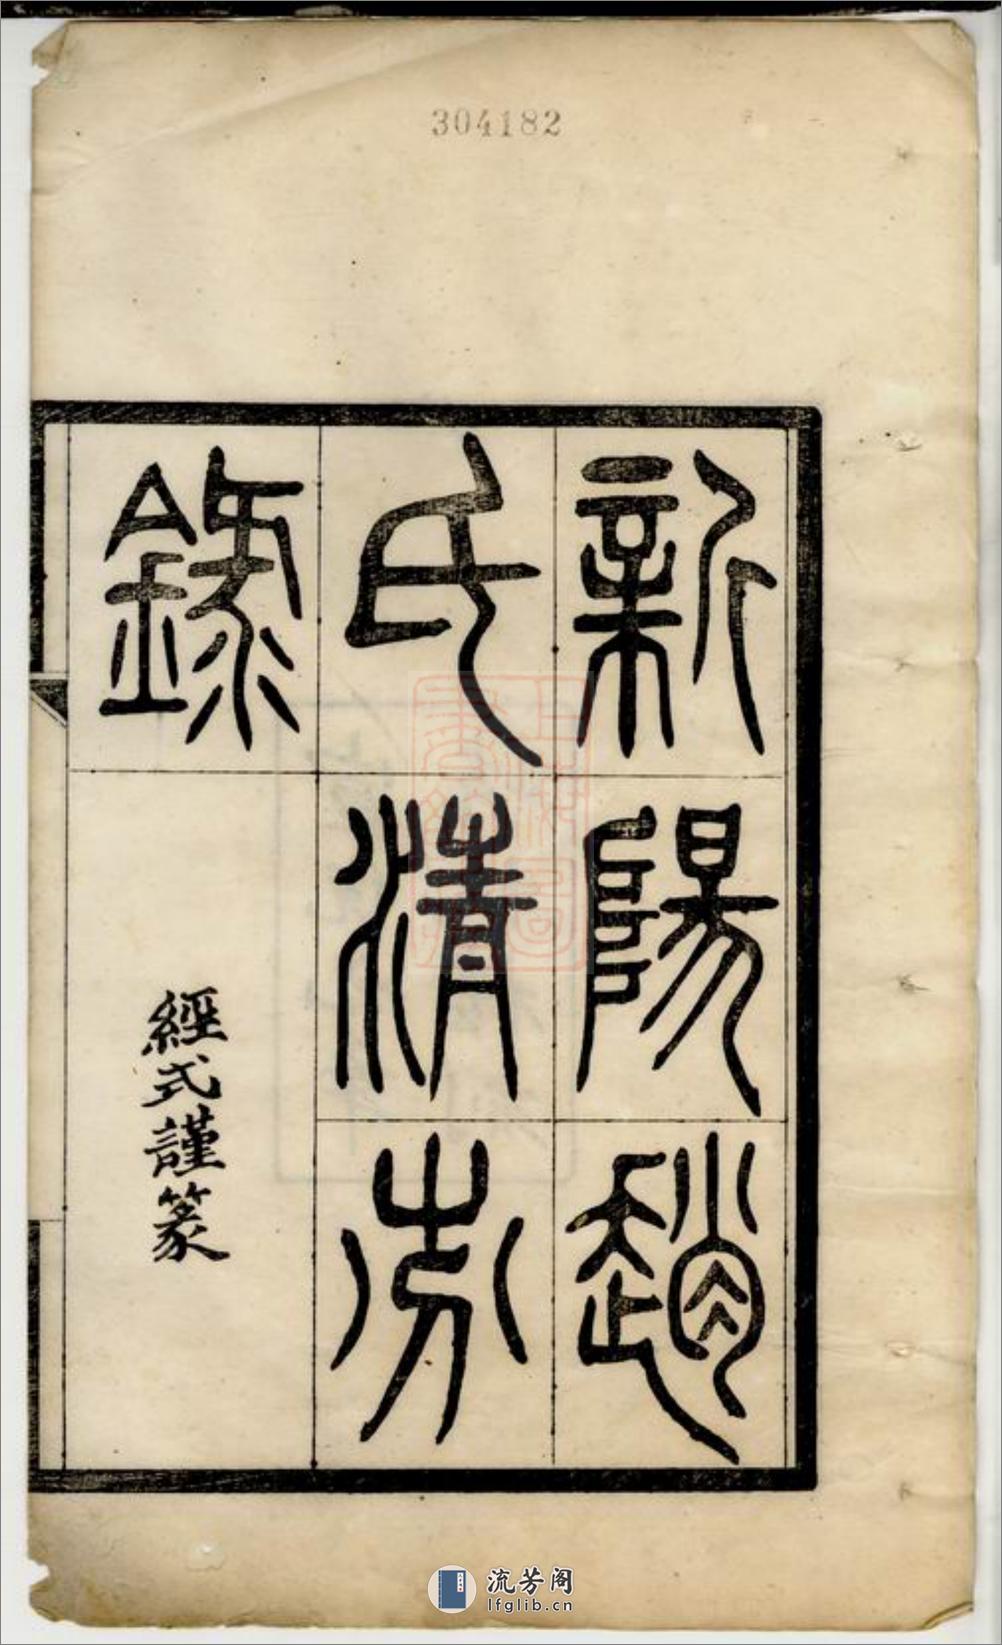 304182
新陽趙
氏清芬
錄
經式謹篆
流芳阁
lfglib.cn